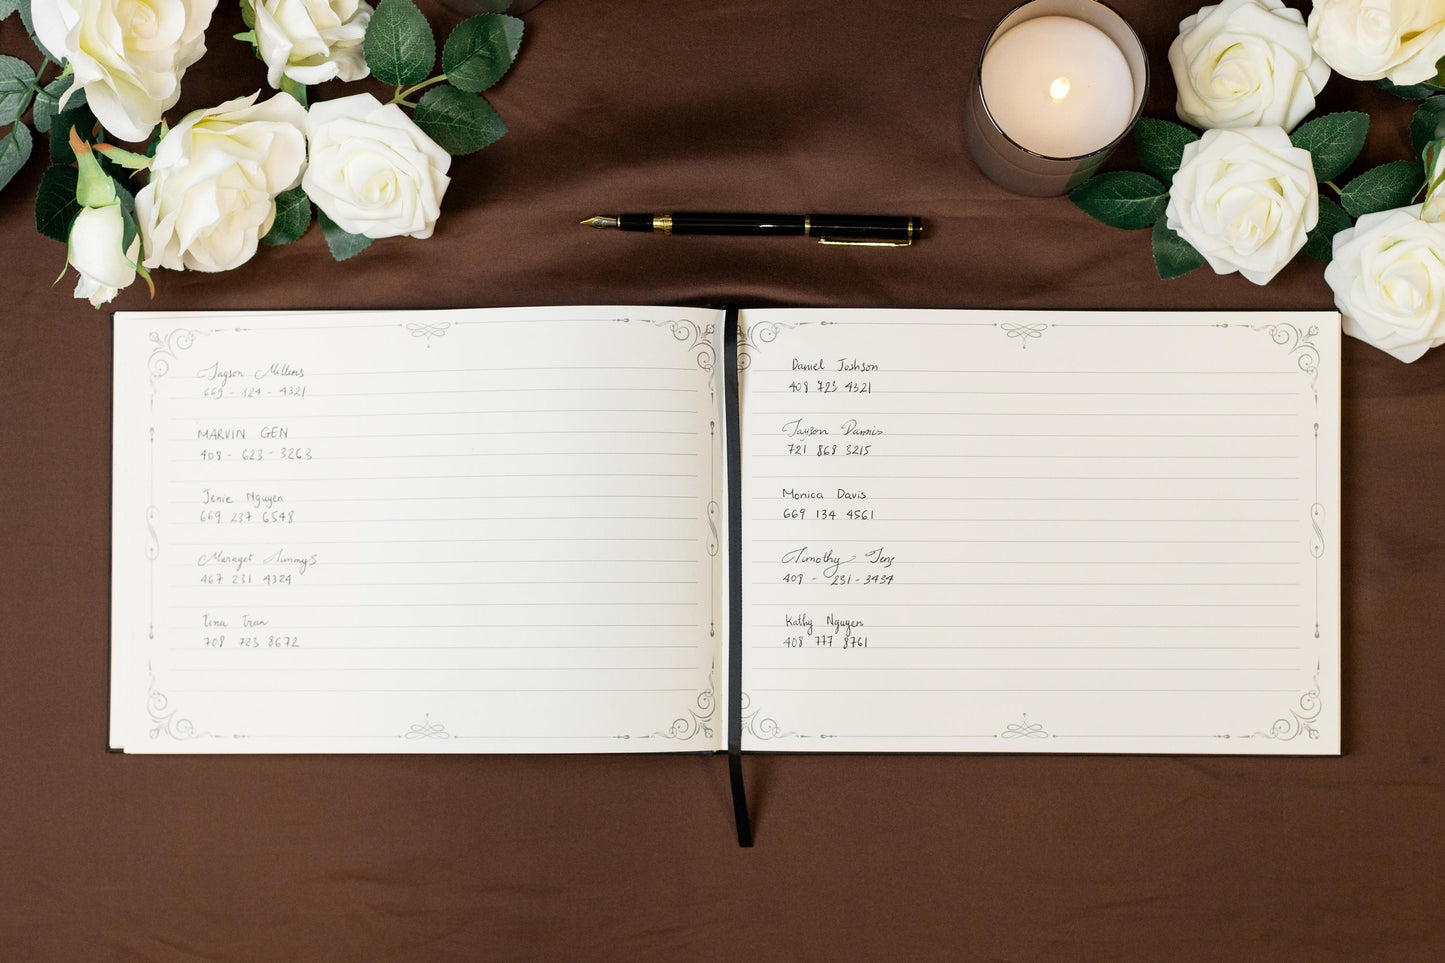 Jayson Millens
669 - 124 - 4321
MARVIN GEN
408 - 623 - 3263
Jenie Nguyen
669 237 6548
Maraget Jimmys
467 231 4324
Tina Tran
708 723 8672
Daniel Joshson
408 723 4321
Jayson Dannis
721 868 3215
Monica Davis
669 134 4561
Timothy Jens
408 - 231 - 3434
Kathy Nguyen
408 777 8761